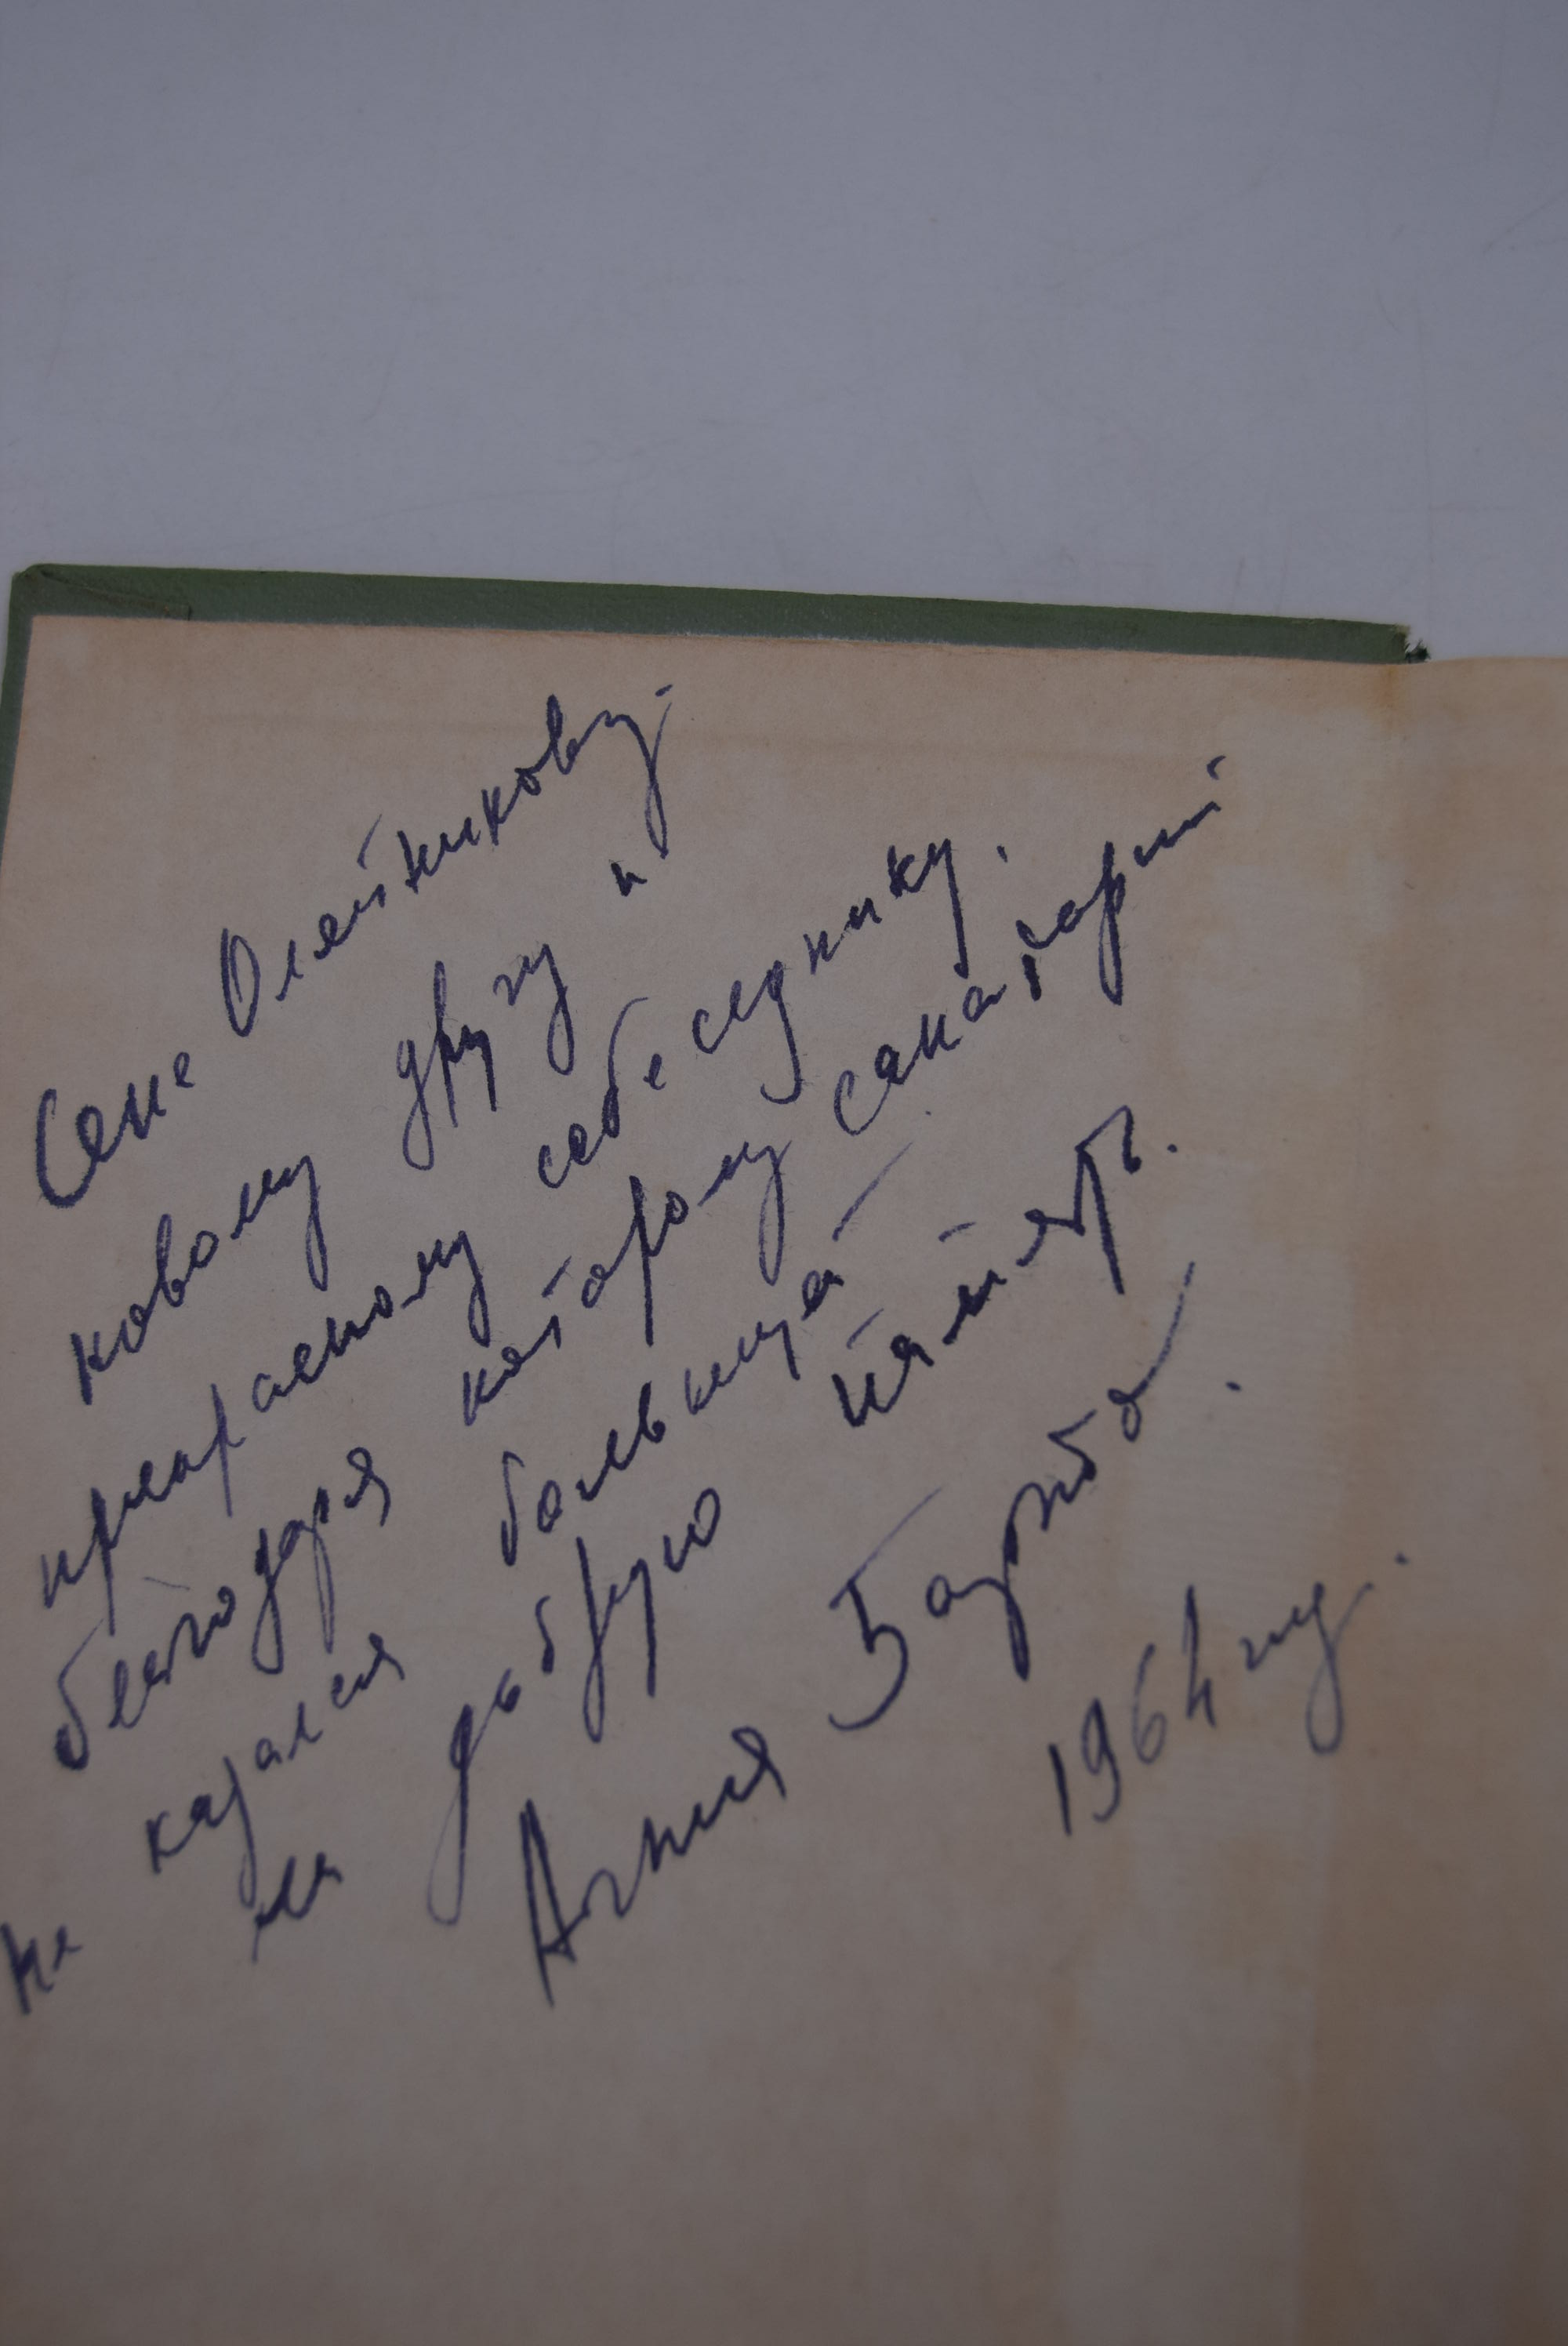 Сене Олейникову,
новому другу и
прекрасному собеседнику.
благодаря которому санаторий
казался больницей
На добрую память.
Агния Барто.
1964 год.